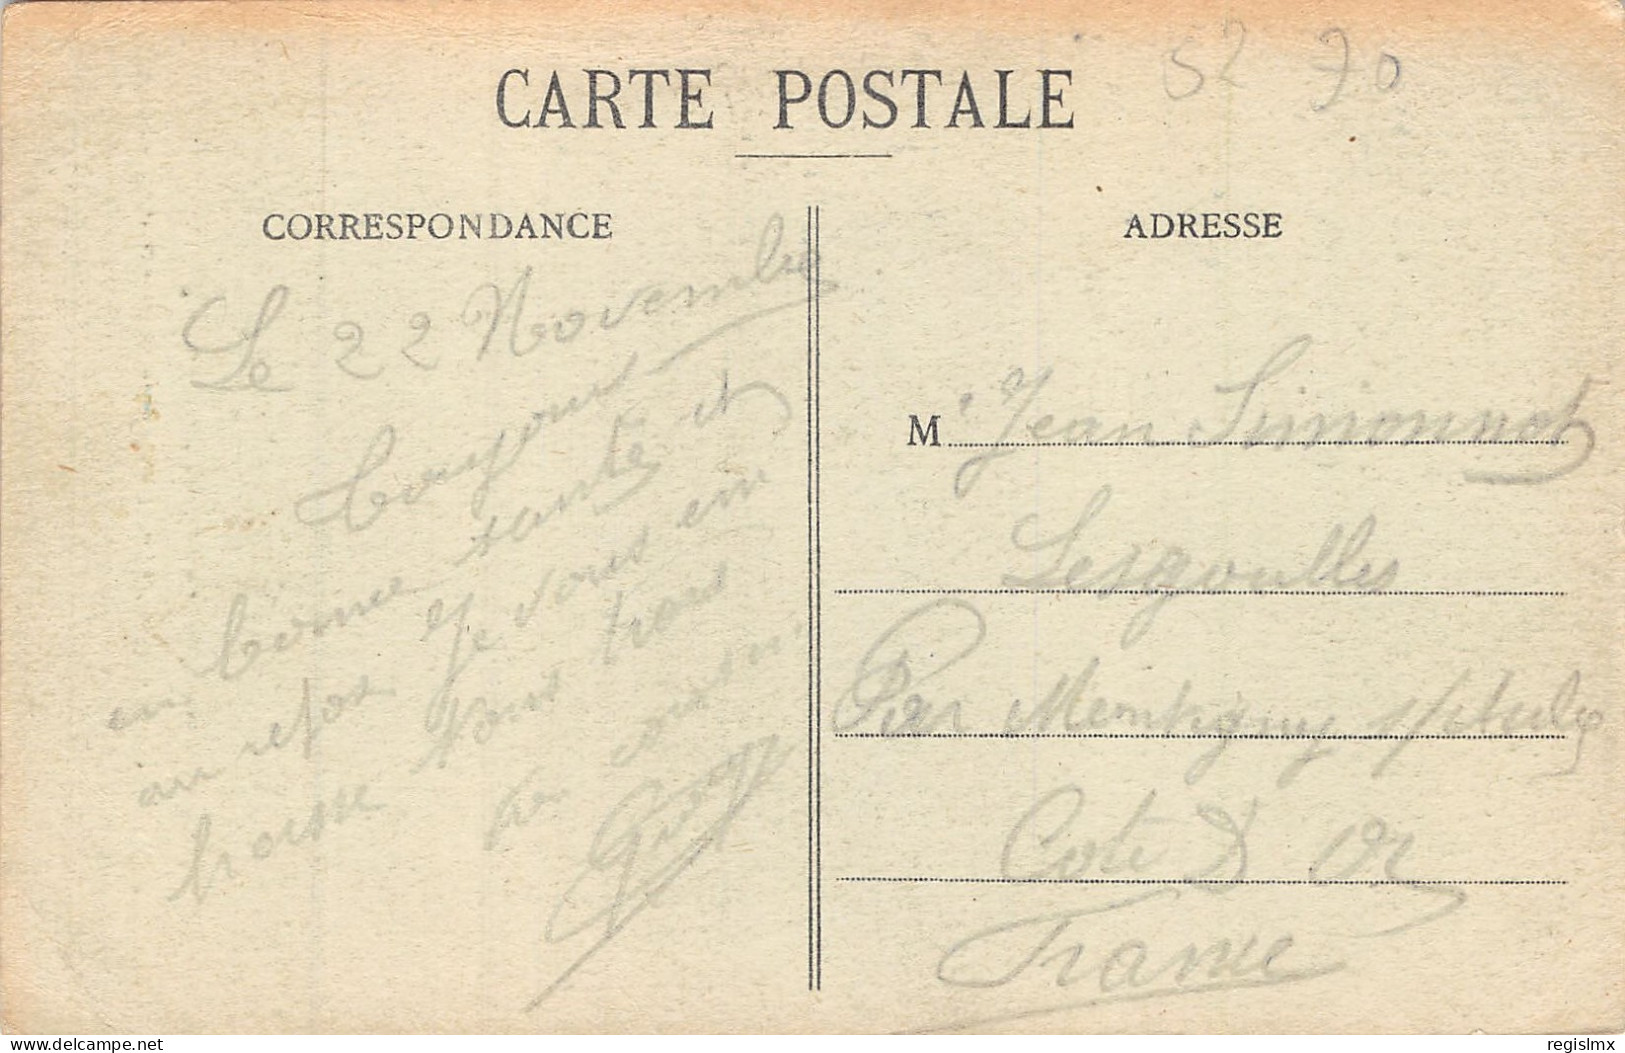 52 70
CARTE POSTALE
CORRESPONDANCE
ADRESSE
Le 22 Novembre
toujours
en bonne santé et
au repos Je vous en
tous trois
de
M. Jean Simonnot
Lesgoulles
Par Montigny s/
Cote D'or
France
delcampe.net
regislmx